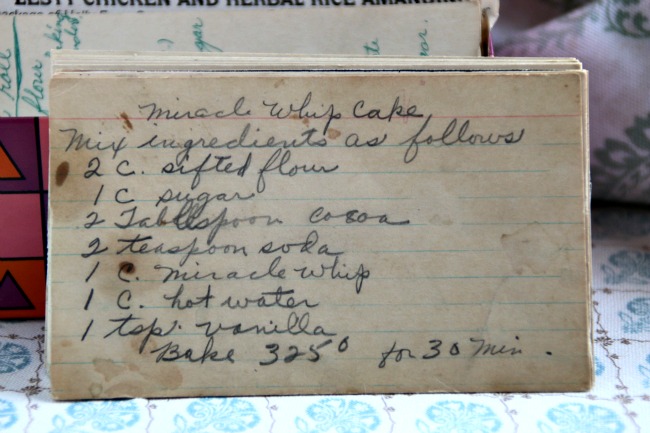 ZESTY CHICKEN AND HERBAL RICE AMANDINE
roll
flour
Miracle Whip Cake
Mix ingredients as follows
2 C. sifted flour
1 C sugar
2 Tablespoon cocoa
2 teaspoon soda
1 C. Miracle Whip
1 C. hot water
1 tsp. vanilla
Bake 325° for 30 Min.